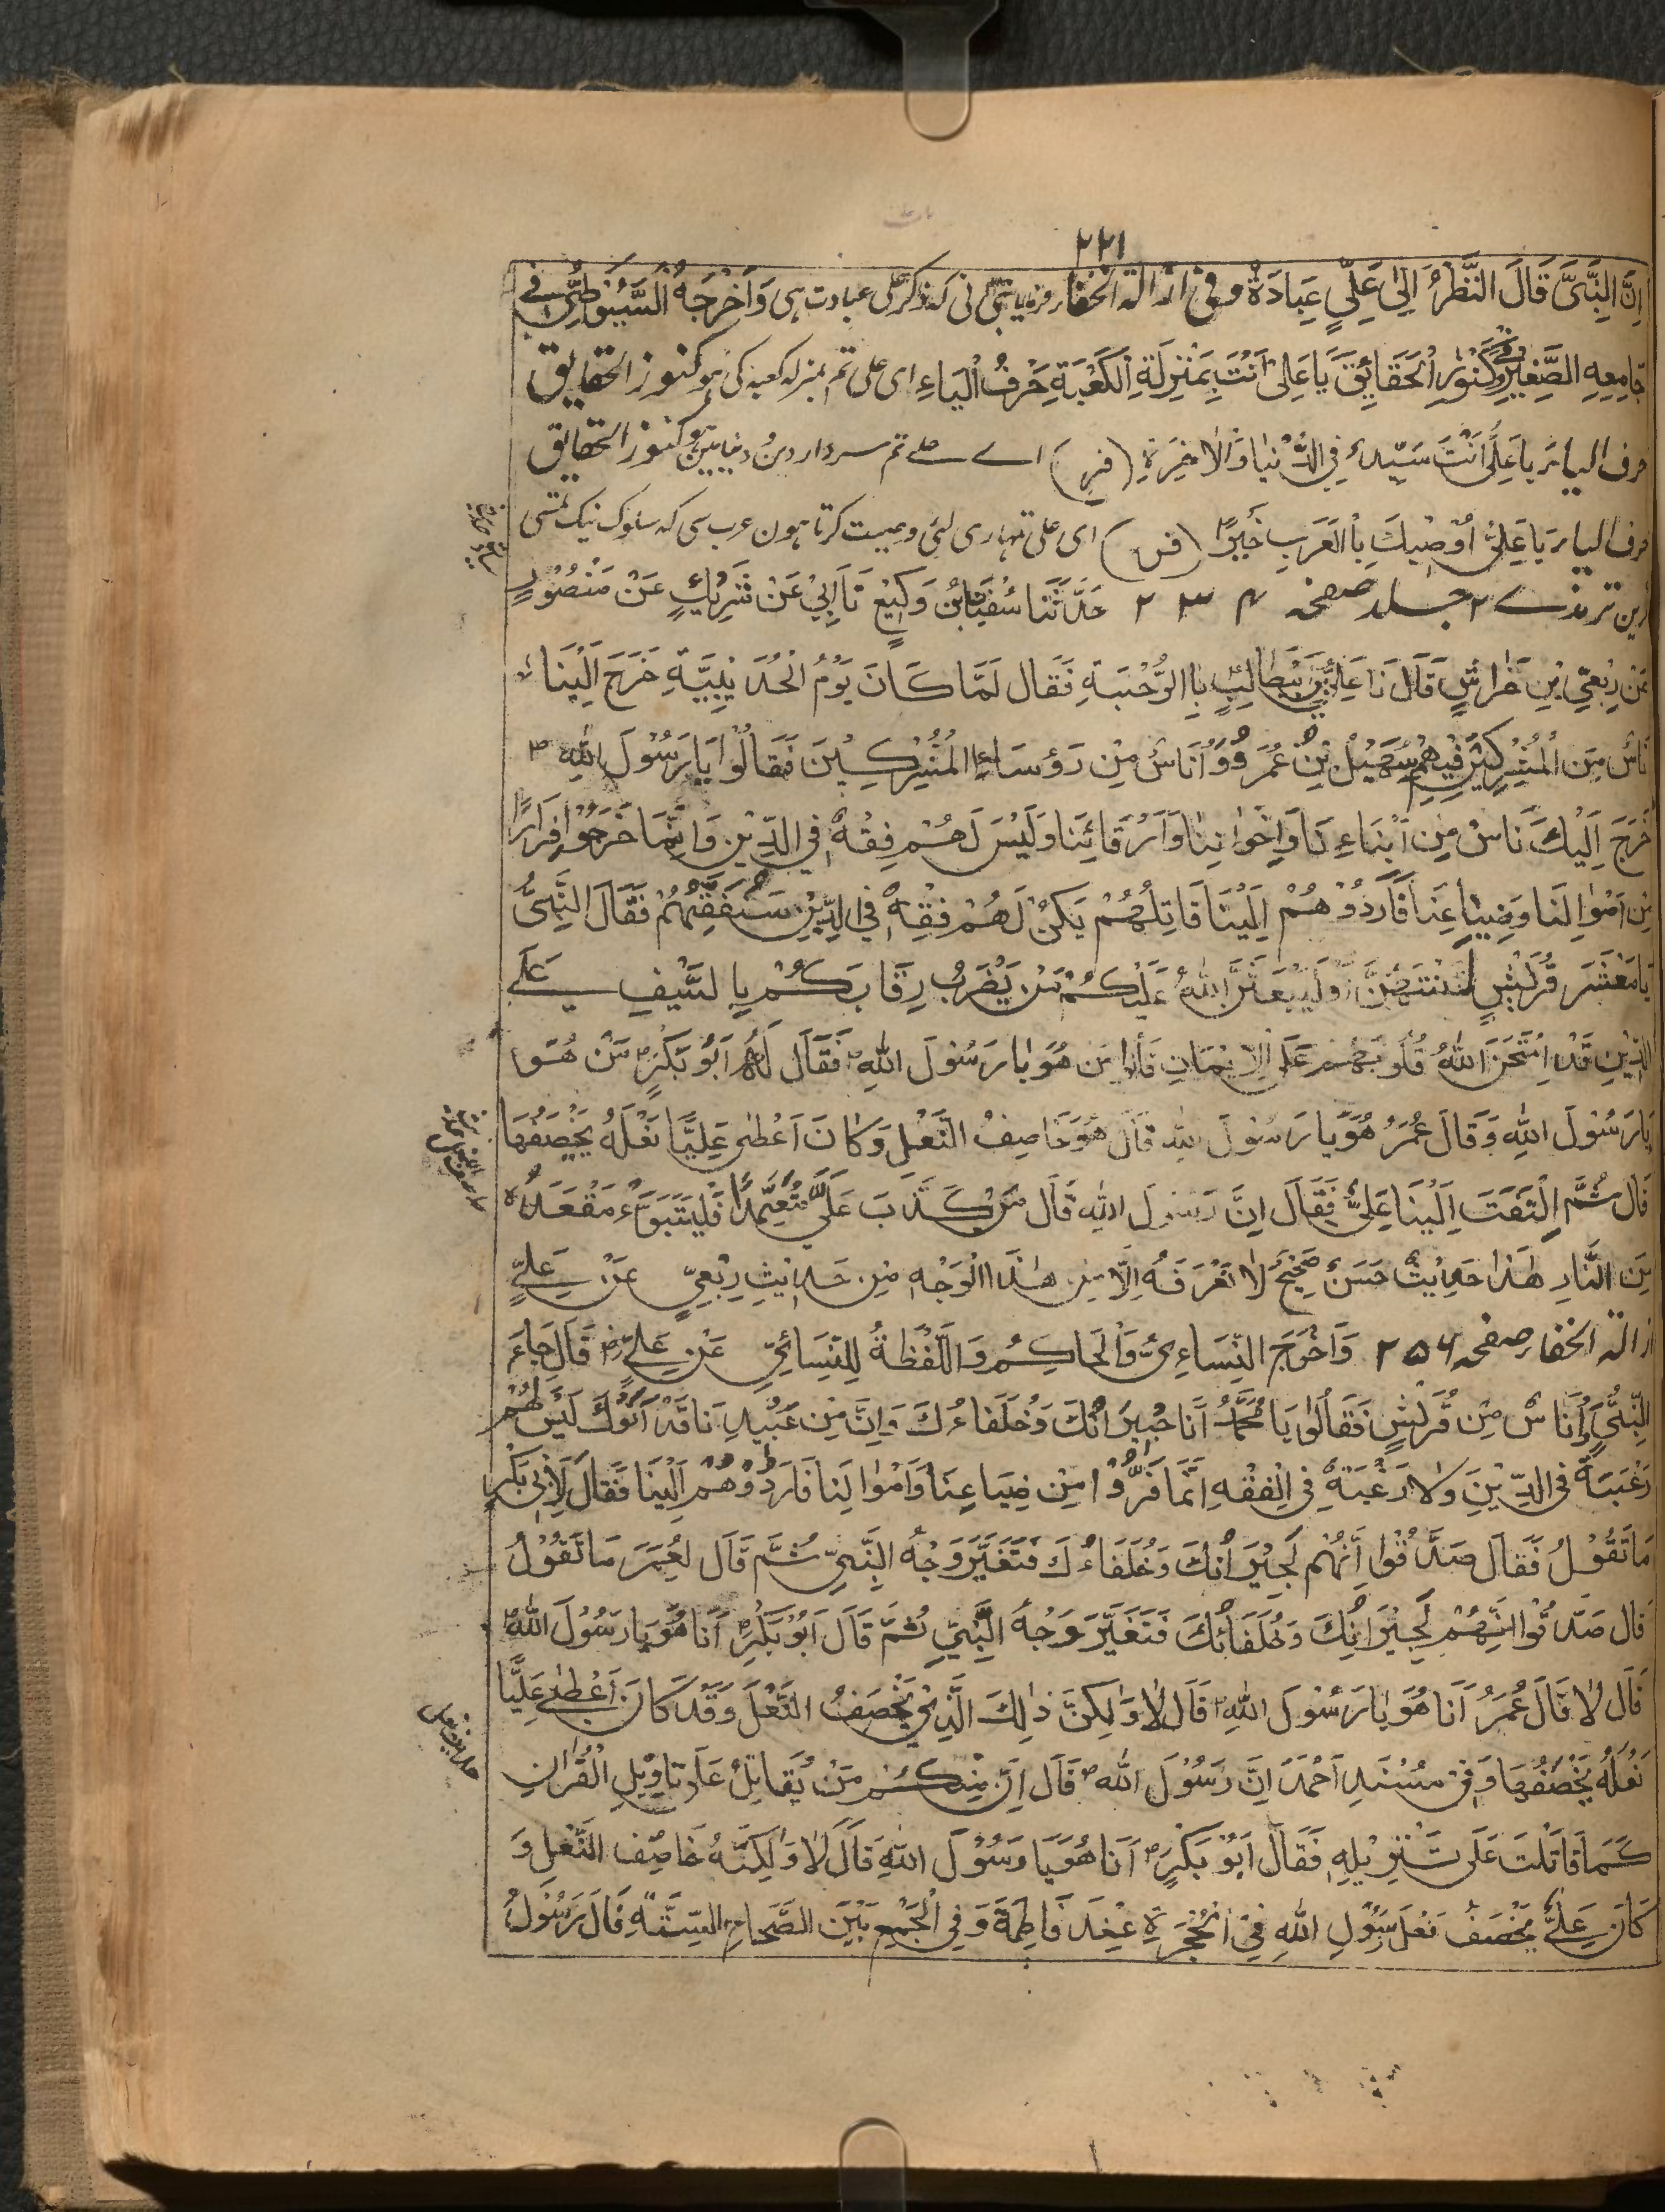 ۲۲۱
اِنَّ النَّبِيَّ قَالَ النَّظَرُ اِلٰى عَلِيٍّ عِبَادَةٌ وفی ازالة الخفا فرمایا نبی نی کہ ذکر علی عبادت ہی وَاَخْرَجَهُ السُّيُوْطِيُّ فے
جَامِعِهِ الصَّغِيْرِ وفے كُنُوْزِ الْحَقَائِقِ يَا عَلِيُّ اَنْتَ بِمَنْزِلَةِ الْكَعْبَةِ حَرْفُ الْيَاءِ ای علی تم بمنزلہ کعبہ کی ہو کنوز الحقایق
حرف الیاء يَا عَلِيُّ اَنْتَ سَيِّدٌ فِي الدُّنْيَا وَالْاٰخِرَةِ (فر) اے علے تم سردار دین ودنیا مین ہو کنوز الحقایق
حرف الیاء يَا عَلِيُّ اُوْصِيْكَ بِالْعَرَبِ خَيْرًا (فر) ای علی تمہاری لئی وصیت کرتا ہون عرب سی کہ سلوک نیک تمسی
کرین ترمذے ۲ جلد صفحہ ۲۳۴ حَدَّثَنَا سُفْيَانُ بْنُ وَكِيْعٍ نَا اَبِيْ عَنْ شَرِيْكٍ عَنْ مَنْصُوْرٍ
عَنْ رِبْعِيِّ بْنِ خِرَاشٍ قَالَ نَا عَلِيُّ بْنُ اَبِيْطَالِبٍ بِالرُّحْبَةِ فَقَالَ لَمَّا كَانَ يَوْمُ الْحُدَيْبِيَّةِ خَرَجَ اِلَيْنَا
نَاسٌ مِنَ الْمُشْرِكِيْنَ فِيْهِمْ سُهَيْلُ بْنُ عُمَرَ وَ وَاُنَاسٌ مِنْ رَؤسَاءِ الْمُشْرِكِيْنَ فَقَالُوْا يَا رَسُوْلَ اللهِ
خَرَجَ اِلَيْكَ نَاسٌ مِنْ اَبْنَاءِنَا وَاِخْوَانِنَا وَاَرِقَّائِنَا وَلَيْسَ لَهُمْ فِقْهٌ فِي الدِّيْنِ وَاِنَّمَا خَرَجُوْا فِرَارًا
مِنْ اَمْوَالِنَا وَضِيَاعِنَا فَارْدُدْهُمْ اِلَيْنَا فَاِنْ لَّمْ يَكُنْ لَهُمْ فِقْهٌ فِي الدِّيْنِ سَنُفَقِّهُهُمْ فَقَالَ النَّبِيُّ
يَا مَعْشَرَ قُرَيْشٍ لَتَنْتَهُنَّ اَوْ لَيَبْعَثَنَّ اللهُ عَلَيْكُمْ مَنْ يَضْرِبُ رِقَابَكُمْ بِالسَّيْفِ عَلَے
الدِّيْنِ قَدِ امْتَحَنَ اللهُ قُلُوْبَهُمْ عَلَى الْاِيْمَانِ قَالُوْا مَنْ هُوَ يَا رَسُوْلَ اللهِ فَقَالَ لَهُ اَبُوْ بَكْرٍ مَنْ هُوَ
يَا رَسُوْلَ اللهِ وَقَالَ عُمَرُ هُوَ يَا رَسُوْلَ اللهِ قَالَ هُوَ خَاصِفُ النَّعْلِ وَكَانَ اَعْطٰى عَلِيًّا نَعْلَهُ يَخْصِفُهَا
قَالَ ثُمَّ الْتَفَتَ اِلَيْنَا عَلِيٌّ فَقَالَ اِنَّ رَسُوْلَ اللهِ قَالَ مَنْ كَذَبَ عَلَيَّ مُتَعَمِّدًا فَلْيَتَبَوَّءْ مَقْعَدَهُ
مِنَ النَّارِ هٰذَا حَدِيْثٌ حَسَنٌ صَحِيْحٌ لَا نَعْرِفُهُ اِلَّا مِنْ هٰذَا الْوَجْهِ مِنْ حَدِيْثِ رِبْعِيٍّ عَنْ عَلِيٍّ
ازالة الخفا صفحہ ۲۵۶ وَاَخْرَجَ النَّسَاءِيُّ وَالْحَاكِمُ وَاللَّفْظَةُ لِلنَّسَائِيِّ عَنْ عَلِيٍّ قَالَ جَاءَ
النَّبِيَّ اُنَاسٌ مِنْ قُرَيْشٍ فَقَالُوْا يَا مُحَمَّدُ اَنَا جِيْرَانُكَ وَحُلَفَاءُكَ وَاِنَّ مِنْ عَبِيْدِنَا قَدْ اَتَوْكَ لَيْسَ لَهُمْ
رَغْبَةٌ فِي الدِّيْنِ وَلَا رَغْبَةٌ فِي الْفِقْهِ اِنَّمَا فَرُّوْا مِنْ ضِيَاعِنَا وَاَمْوَالِنَا فَارْدُدْهُمْ اِلَيْنَا فَقَالَ لِاَبِيْ بَكْرٍ
مَا تَقُوْلُ فَقَالَ صَدَقُوْا اِنَّهُمْ لَجِيْرَانُكَ وَحُلَفَاءُكَ فَتَغَيَّرَ وَجْهُ النَّبِيِّ ثُمَّ قَالَ لِعُمَرَ مَا تَقُوْلُ
قَالَ صَدَقُوْا اِنَّهُمْ لَجِيْرَانُكَ وَحُلَفَائُكَ فَتَغَيَّرَ وَجْهُ النَّبِيِّ ثُمَّ قَالَ اَبُوْ بَكْرٍ اَنَا هُوَ يَا رَسُوْلَ اللهِ
قَالَ لَا قَالَ عُمَرُ اَنَا هُوَ يَا رَسُوْلَ اللهِ قَالَ لَا وَلٰكِنَّ ذٰلِكَ الَّذِيْ يَخْصِفُ النَّعْلَ وَقَدْ كَانَ اَعْطٰى عَلِيًّا
نَعْلَهُ يَخْصِفُهَا وَفِيْ مُسْنَدِ اَحْمَدَ اِنَّ رَسُوْلَ اللهِ قَالَ اِنَّ مِنْكُمْ مَنْ يُقَاتِلُ عَلٰى تَاوِيْلِ الْقُرْاٰنِ
كَمَا قَاتَلْتُ عَلٰى تَنْزِيْلِهٖ فَقَالَ اَبُوْ بَكْرٍ اَنَا هُوَ يَا رَسُوْلَ اللهِ قَالَ لَا وَلٰكِنَّهُ خَاصِفُ النَّعْلِ وَ
كَانَ عَلِيٌّ يَخْصِفُ نَعْلَ رَسُوْلِ اللهِ فِيْ الْحُجْرَةِ عِنْدَ فَاطِمَةَ وَفِي الْجَمْعِ بَيْنَ الصِّحَاحِ السِّتَّةِ قَالَ رَسُوْلُ